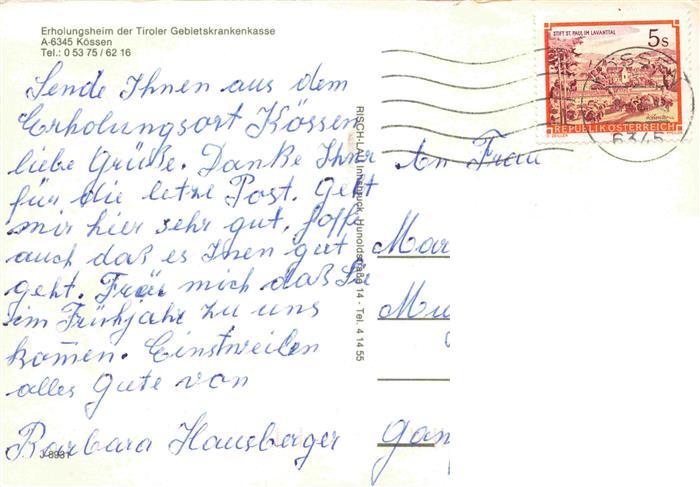 Erholungsheim der Tiroler Gebietskrankenkasse
A-6345 Kössen
Tel.: 0 53 75 / 62 16
Sende Ihnen aus dem
Erholungsort Kössen
liebe Grüße. Danke Ihner
für die letze Post. Geht
mir hier sehr gut, hoff
auch daß es Inen gut
geht. Freu mich daß Sie
im Frühjahr zu uns
komen. Einstweilen
alles Gute von
Barbara Hausberger
J 8931
RISCH-LAU Innsbruck, Hunoldstraße 14 - Tel. 4 14 55
STIFT ST. PAUL IM LAVANTTAL
5 S
REPUBLIK ÖSTERREICH
6345
An Frau
Mar
Mu
Gan